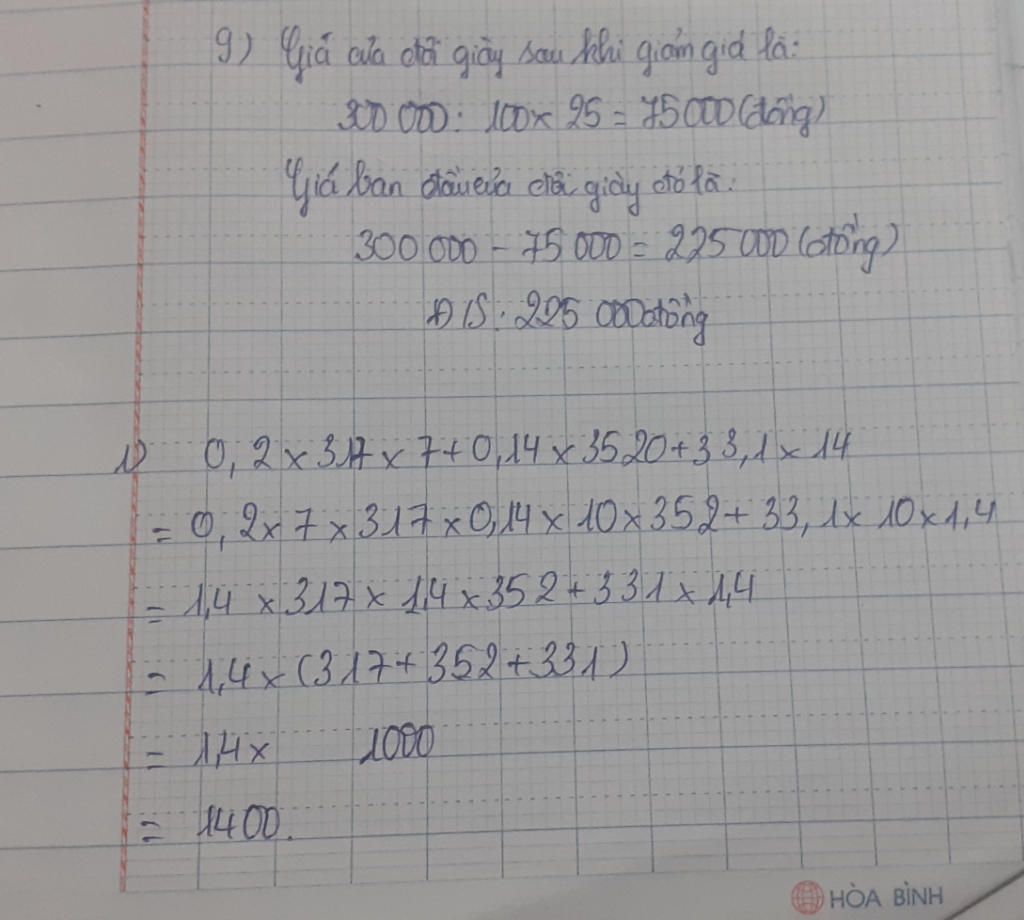 9) Giá của đôi giày sau khi giảm giá là:
300 000 : 100 x 25 = 75 000 (đồng)
Giá ban đầu của đôi giày đó là:
300 000 - 75 000 = 225 000 (đồng)
Đ/S: 225 000 đồng
1) 0,2 x 317 x 7 + 0,14 x 3520 + 33,1 x 14
= 0,2 x 7 x 317 x 0,14 x 10 x 352 + 33,1 x 10 x 1,4
= 1,4 x 317 x 1,4 x 352 + 331 x 1,4
= 1,4 x (317 + 352 + 331)
= 1,4 x 1000
= 1400.
HÒA BÌNH